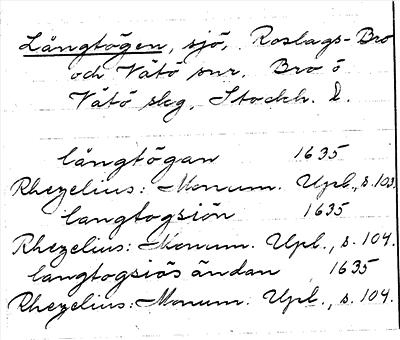 Långtögen, sjö, Roslags-Bro
och Vätö snr. Bro o
Vätö skg. Stockh. L.
långtögan 1635
Rhezelius: Monum. Upl., s. 103.
langtogsiön 1635
Rhezelius: Monum. Upl., s. 104.
langtogsiös ändan 1635
Rhezelius: Monum. Upl., s. 104.